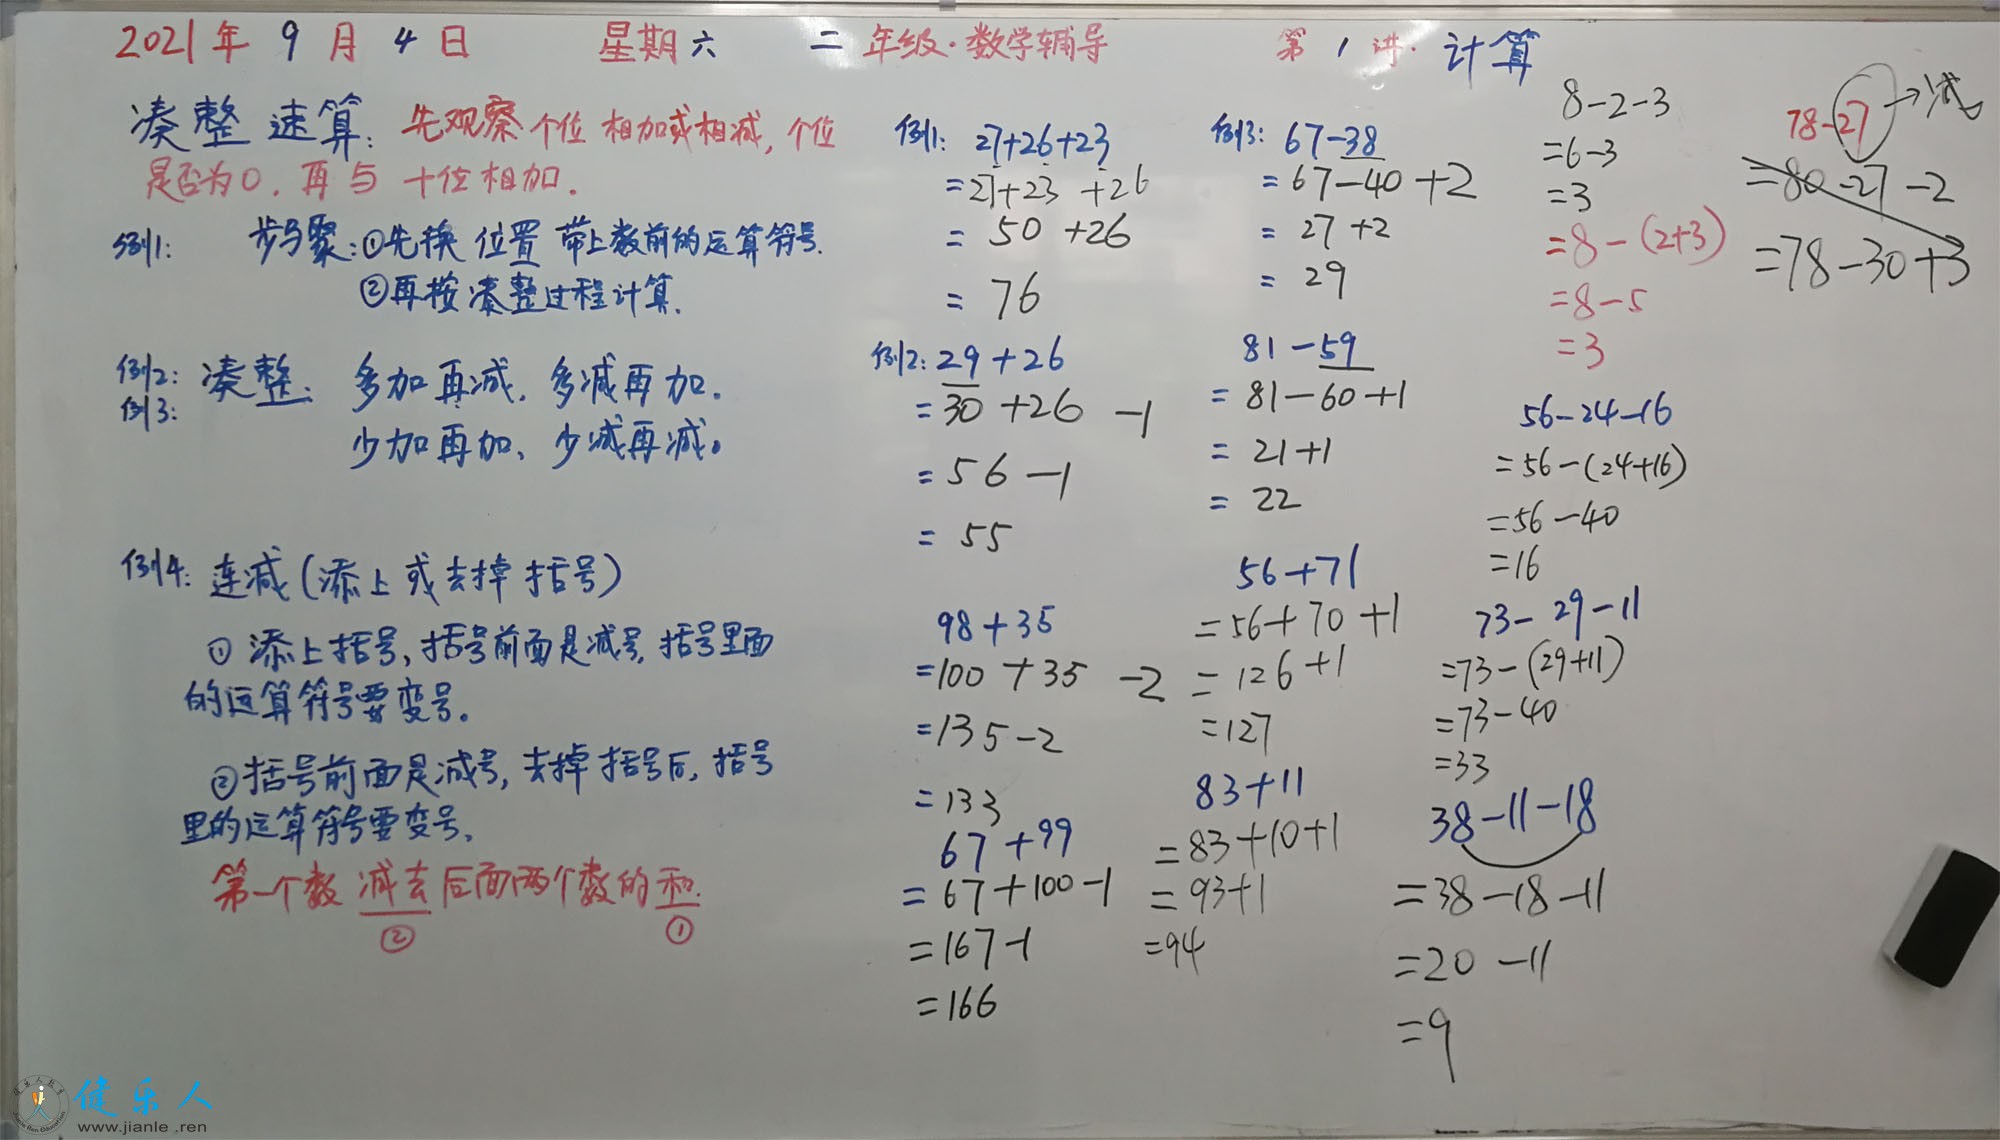 2021年 9月 4日 星期六 二年级·数学辅导 第1讲·计算
凑整速算：先观察个位相加或相减，个位
是否为0，再与十位相加.
例1: 步骤：①先换位置带上数前的运算符号.
②再按凑整过程计算.
例2: 凑整: 多加再减，多减再加.
例3:
少加再加、少减再减。
例4: 连减(添上或去掉括号)
① 添上括号，括号前面是减号，括号里面
的运算符号要变号。
②括号前面是减号，去掉括号后，括号
里的运算符号要变号.
第一个数减去后面两个数的和.
② ①
例1: 27+26+23
=27+23 +26
= 50 +26
= 76
例2: 29+26
=30 +26 -1
=56-1
= 55
98+35
=100 +35 -2
=135-2
=133
67+99
=67+100-1
=167-1
=166
例3: 67-38
=67-40 +2
= 27+2
= 29
81-59
= 81-60+1
= 21+1
= 22
56+71
=56+70+1
=126+1
=127
83+11
=83+10+1
=93+1
=94
8-2-3
=6-3
=3
=8-(2+3)
=8-5
=3
56-24-16
=56-(24+16)
=56-40
=16
73-29-11
=73-(29+11)
=73-40
=33
38-11-18
=38-18-11
=20-11
=9
78-27→减
=80-27-2
=78-30+3
健乐人
www.jianle.ren